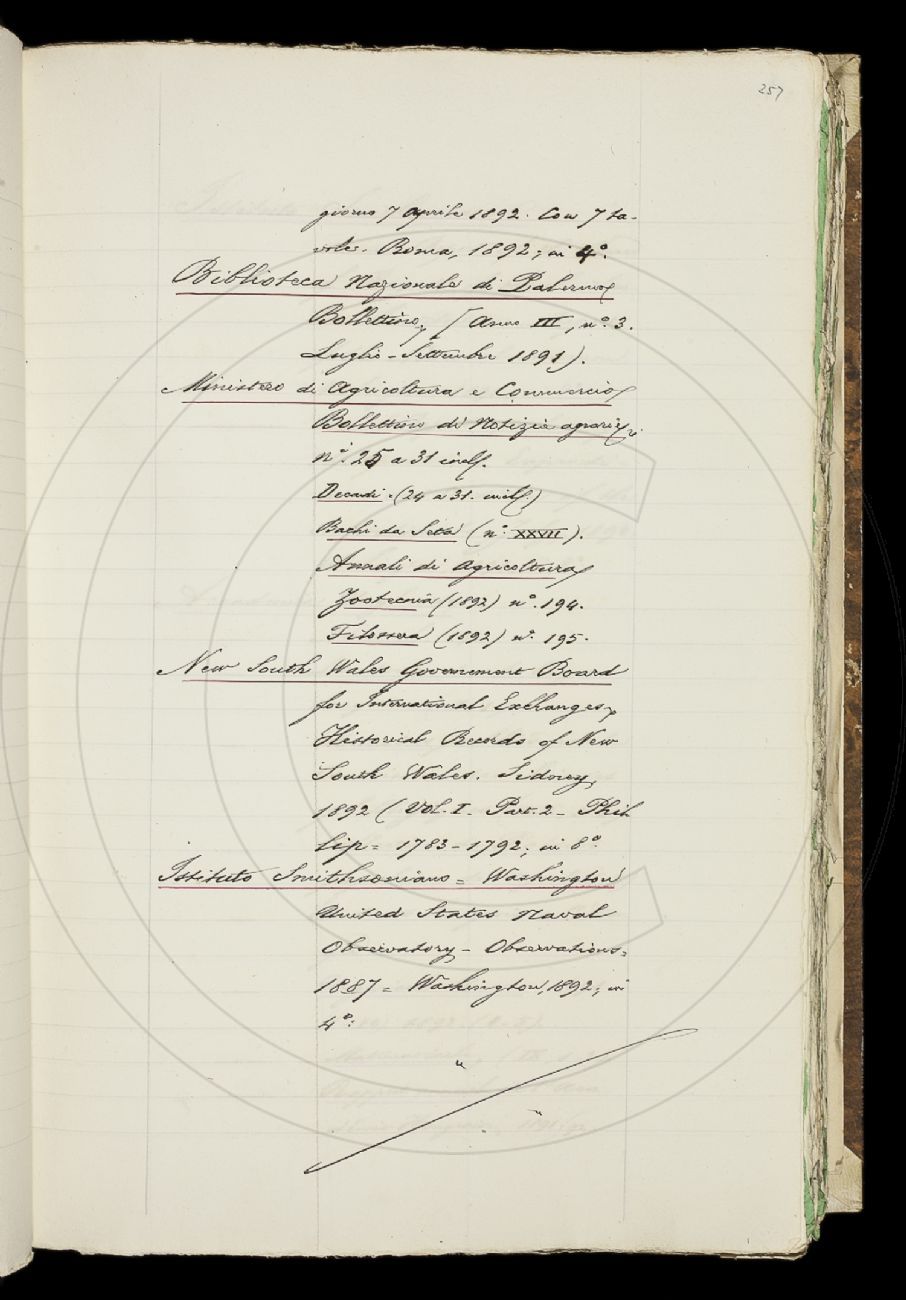 257
giorno 7 aprile 1892. Con 7 ta-
vole. Roma, 1892; in 4°.
Biblioteca Nazionale di Palermo
Bollettino, (Anno III, n.° 3.
Luglio - Settembre 1891).
Ministero di Agricoltura e Commercio
Bollettino di Notizie agrarie
n.° 25 a 31 incl.
Decadi. (24 a 31. incl.)
Bachi da Seta (n.° XXVII).
Annali di Agricoltura
Zootecnia (1892) n.° 194.
Filossera (1892) n.° 195.
New South Wales Governement Board
for International Exchanges,
Historical Records of New
South Wales. Sidney,
1892 (Vol. I. Part. 2 - Phil
lip = 1783-1792; in 8°.
Istituto Smithsoniano = Washington
United States Naval
Observatory - Observations =
1887 = Washington, 1892; in
4°: